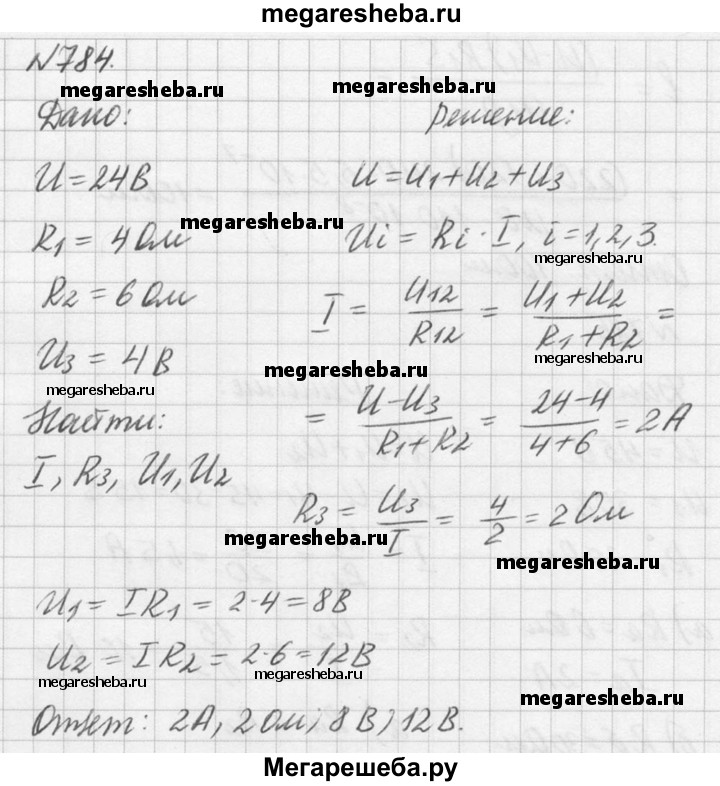 megaresheba.ru
№784.
megaresheba.ru megaresheba.ru
Дано: Решение:
U=24В U=U1+U2+U3
megaresheba.ru
R1=4Ом Ui=Ri·I, i=1,2,3.
megaresheba.ru
R2=6Ом I = U12/R12 = U1+U2/R1+R2 =
megaresheba.ru
U3=4В
megaresheba.ru megaresheba.ru
Найти: = U-U3/R1+R2 = 24-4/4+6 = 2А
I, R3, U1, U2
R3 = U3/I = 4/2 = 2Ом
megaresheba.ru
megaresheba.ru
U1=IR1=2·4=8В
U2=IR2=2·6=12В
megaresheba.ru megaresheba.ru
megaresheba.ru
Ответ: 2А; 2Ом; 8В; 12В.
Мегарешеба.ру